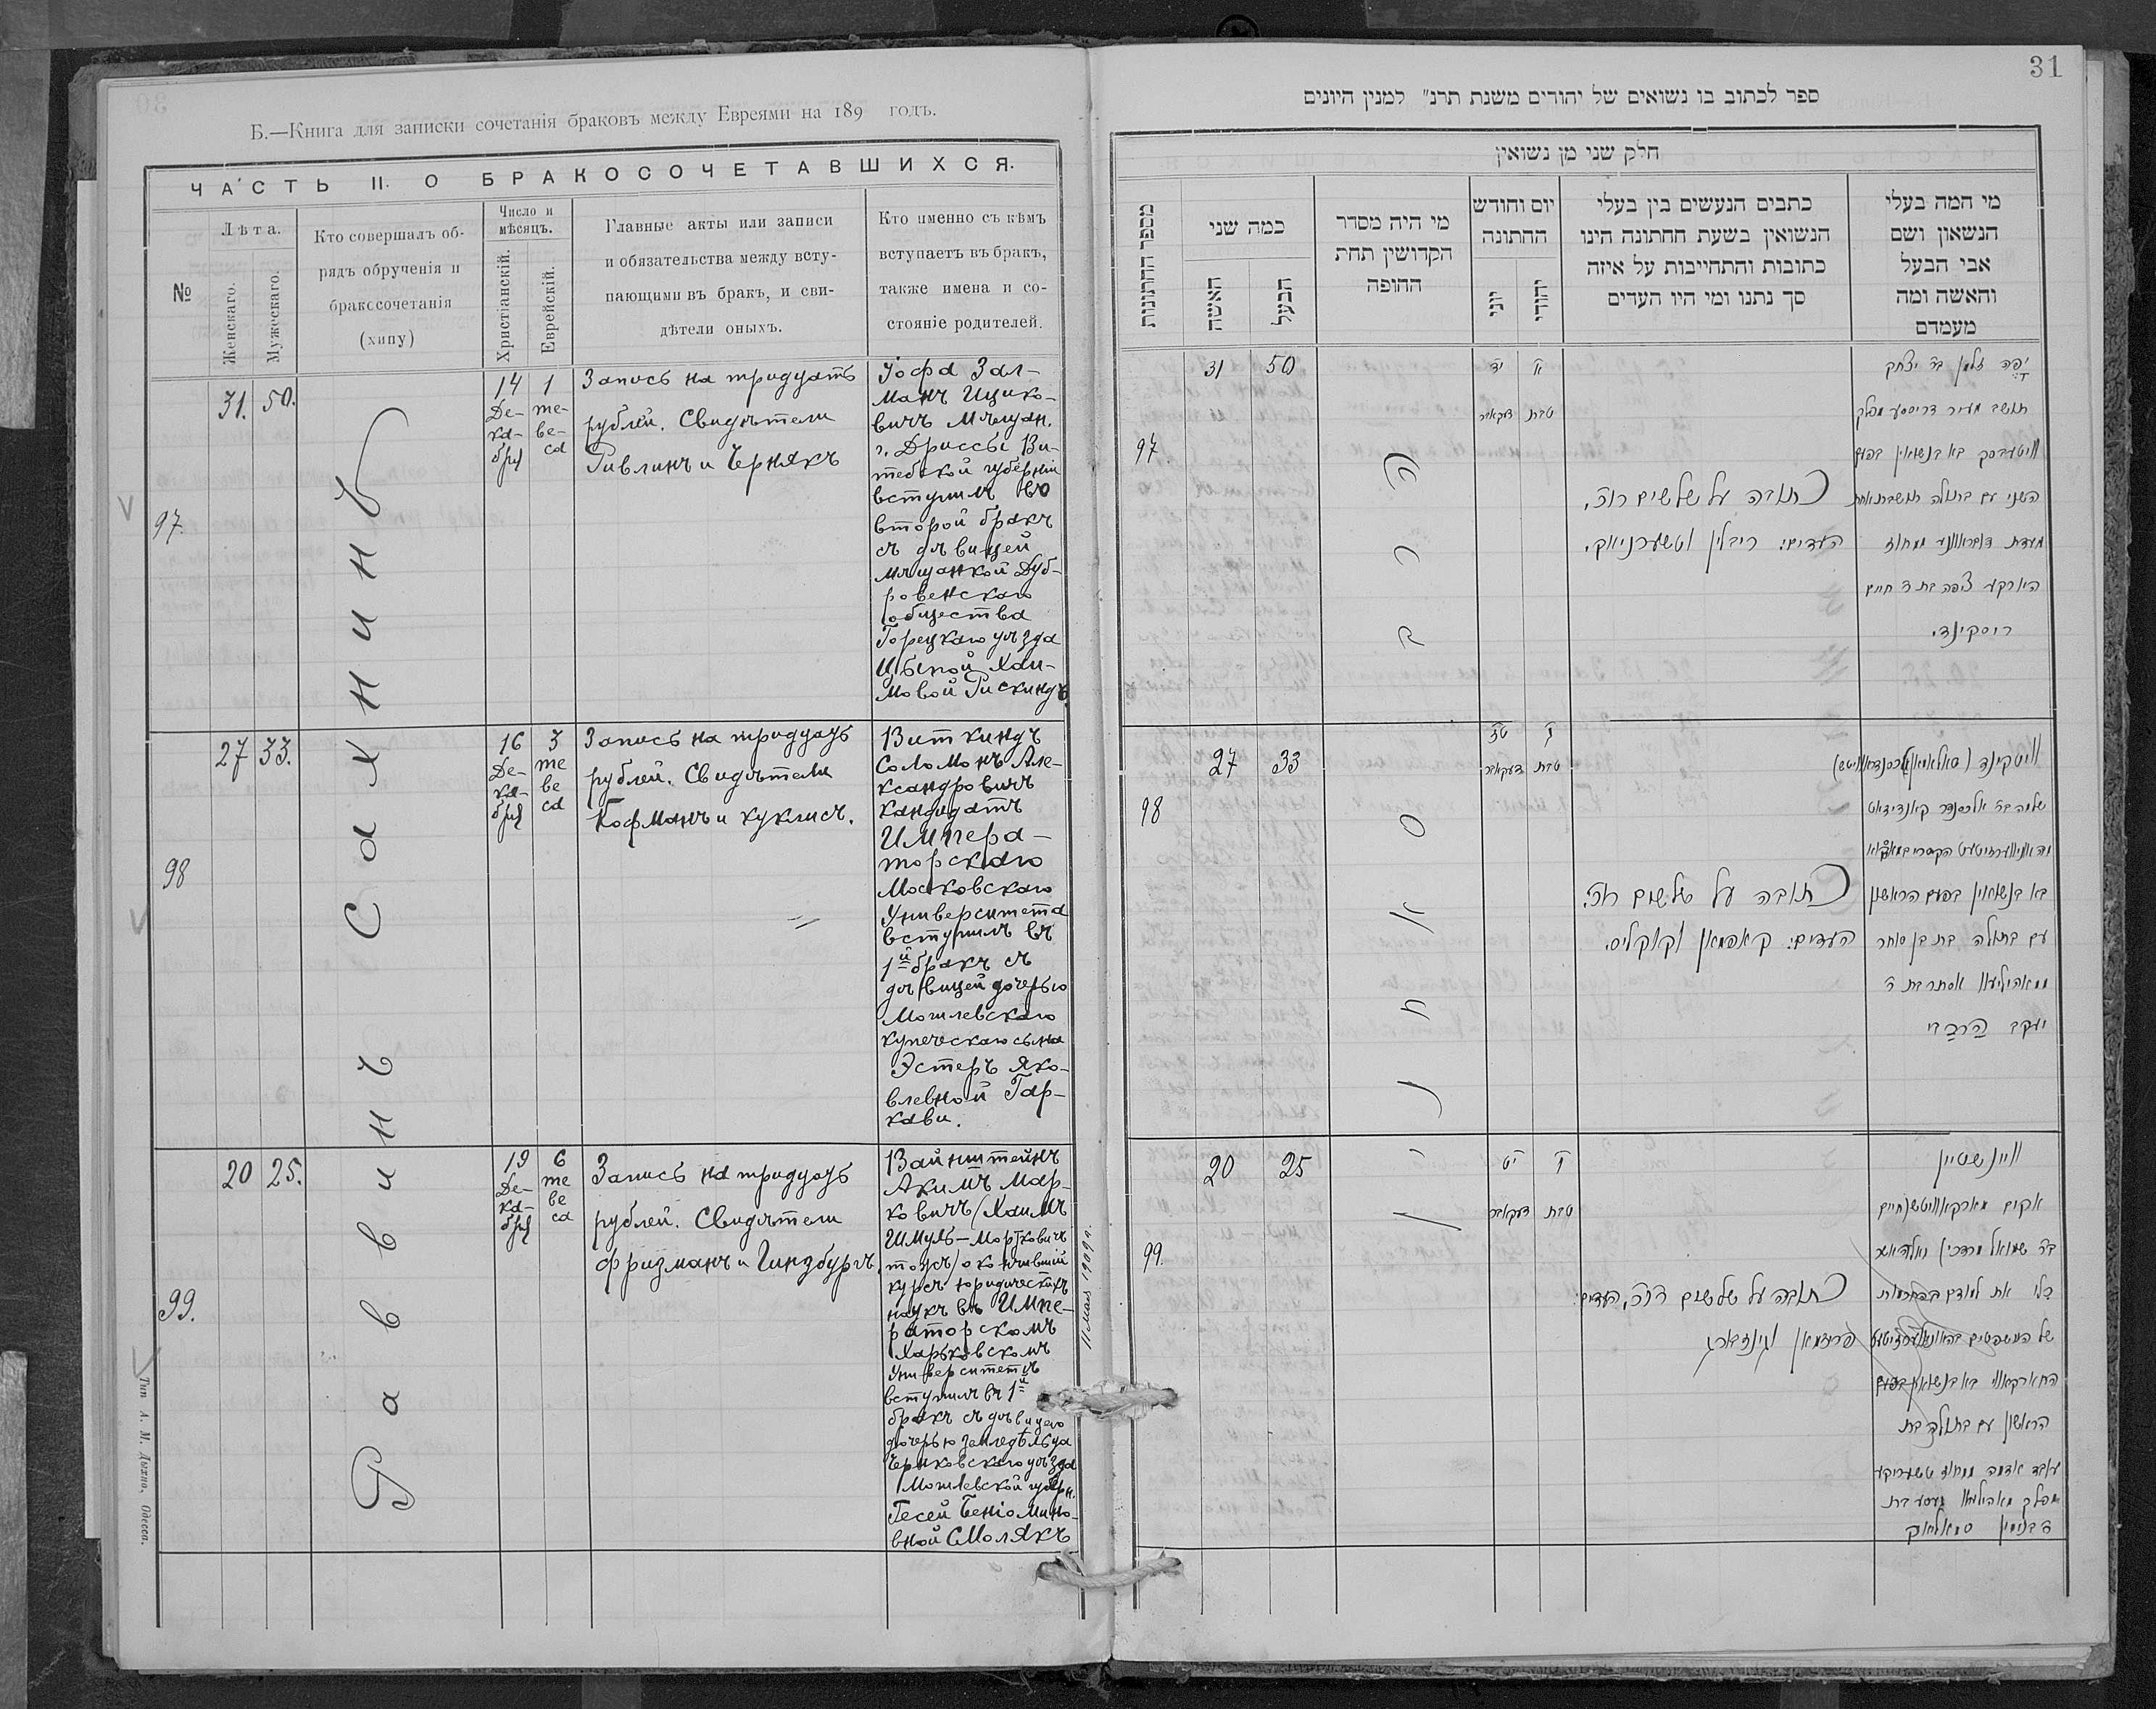 Б.—Книга для записки сочетанія браковъ между Евреями на 189 годъ.
ЧАСТЬ II. О БРАКОСОЧЕТАВШИХСЯ.
№
Лѣта.
Женскаго.
Мужескаго.
Кто совершалъ об-
рядъ обрученія и
браксочетанія
(хипу)
Число и
мѣсяцъ.
Христіанскій.
Еврейскій.
Главные акты или записи
и обязательства между всту-
пающими въ бракъ, и сви-
дѣтели оныхъ.
Кто именно съ кѣмъ
вступаетъ въ бракъ,
также имена и со-
стояніе родителей.
97.
31. 50.
14 1
Де- те-
ка- ве-
бря са
Запись на тридцать
рублей. Свидѣтели
Ривлинъ и Чернякъ
Іофа Зал-
манъ Ицко-
вичъ Мѣщан.
г. Дриссы Ви-
тебской губерніи
вступилъ во
второй бракъ
съ дѣвицей
мѣщанкой Дуб-
ровенскаго
общества
Горецкаго уѣзда
Цыпой Хаи-
мовой Рискиндъ.
Раввинъ Сахнинъ
98
27 33.
16 3
Де- те
ка- ве
бря са
Запись на тридцать
рублей. Свидѣтели
Кофманъ и Куклисъ.
Виткиндъ
Соломонъ Але-
ксандровичъ
кандидатъ
Импера-
торскаго
Московскаго
Университета
вступилъ въ
1й бракъ съ
дѣвицей дочерью
Могилевскаго
купеческаго сына
Эстеръ Яко-
влевной Гар-
кави.
99.
20 25.
19 6
Де- те
ка- ве
бря са
Запись на тридцать
рублей. Свидѣтели
Фризманъ и Гинзбургъ.
Вайнштейнъ
Акимъ Мар-
ковичъ (Хаимъ
Шмуль-Мортковичъ
тожъ) окончившій
курсъ юридическихъ
наукъ въ Импе-
раторскомъ
Харьковскомъ
Университетѣ
вступилъ въ 1й
бракъ съ дѣвицею
дочерью земледѣльца
Чериковскаго уѣзда
Могилевской губерн.
Гесей Беніомино-
вной Смолякъ
1909 г.
Тип. А. М. Дыхно, Одесса.
31
ספר לכתוב בו נשואים של יהודים משנת תרנ״ למנין היונים
חלק שני מן נשואין
מספר החתונות
כמה שני
האישה
הבעל
מי היה מסדר
הקדושין תחת
החופה
יום וחודש
החתונה
יוני
יהודי
כתבים הנעשים בין בעלי
הנשואין בשעת חחתונה הינו
כתובות והתחייבות על איזה
סך נתנו ומי היו העדים
מי המה בעלי
הנשאון ושם
אבי הבעל
והאשה ומה
מעמדם
97.
31 50
יד א
דעקאבר טבת
כתובה על שלשים רו״כ,
העדים: ריבלין וטשערניאק.
יפה זלמן בר יצחק
תושב מעיר דריססע מפלך
וויטעבסק בא בנשואין בפעם
השני עם בתולה תושבת אחת
מעדת דובראוונע ממחוז
האָרקע ציפה בת ר׳ חיים
ריסקינד.
הרב סאחנין
98
27 33
טז ג
דעקאבר טבת
כתובה על שלשים רו״כ.
העדים: קאפמאן וקוקליס.
שלמה בר אלכסנדר קאנדידאט
בא בנשואין בפעם הראשון
עם בתולה בת בן סוחר
ממאהיליעוו אסתר בת ר׳
יעקב הרכבי
99.
20 25
יט ו
דעקאבר טבת
כתובה על שלשים רו״כ, העדים:
פריזמאן וגינזבארג
וויינשטיין
אקים מארקאוויטש (חיים
הראשון עם בתולה בת
עובד אדמה ממחוז טשעריקע
מפלך מאהילעוו געסע בת
ר בנימין סמאליאק